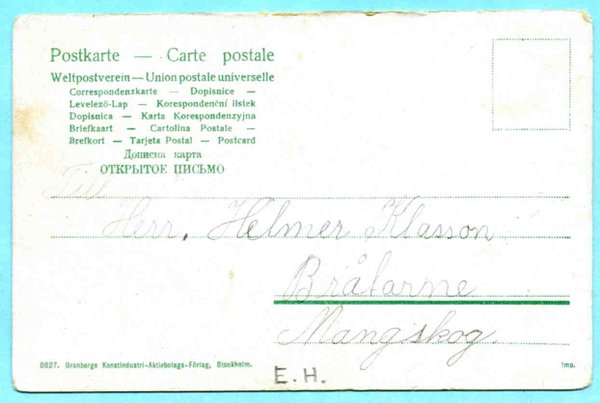 Postkarte — Carte postale
Weltpostverein — Union postale universelle
Correspondenzkarte — Dopisnice —
Levelező-Lap — Korespondenční lístek
Dopisnica — Karta Korespondenzyjna
Briefkaart — Cartolina Postale —
Brefkort — Tarjeta Postal — Postcard
Дописна карта
ОТКРЫТОЕ ПИСЬМО
Till
Herr. Helmer Klasson
Brålarne
Mangskog.
8627. Granbergs Konstindustri-Aktiebolags-Förlag, Stockholm.
Imp.
E.H.